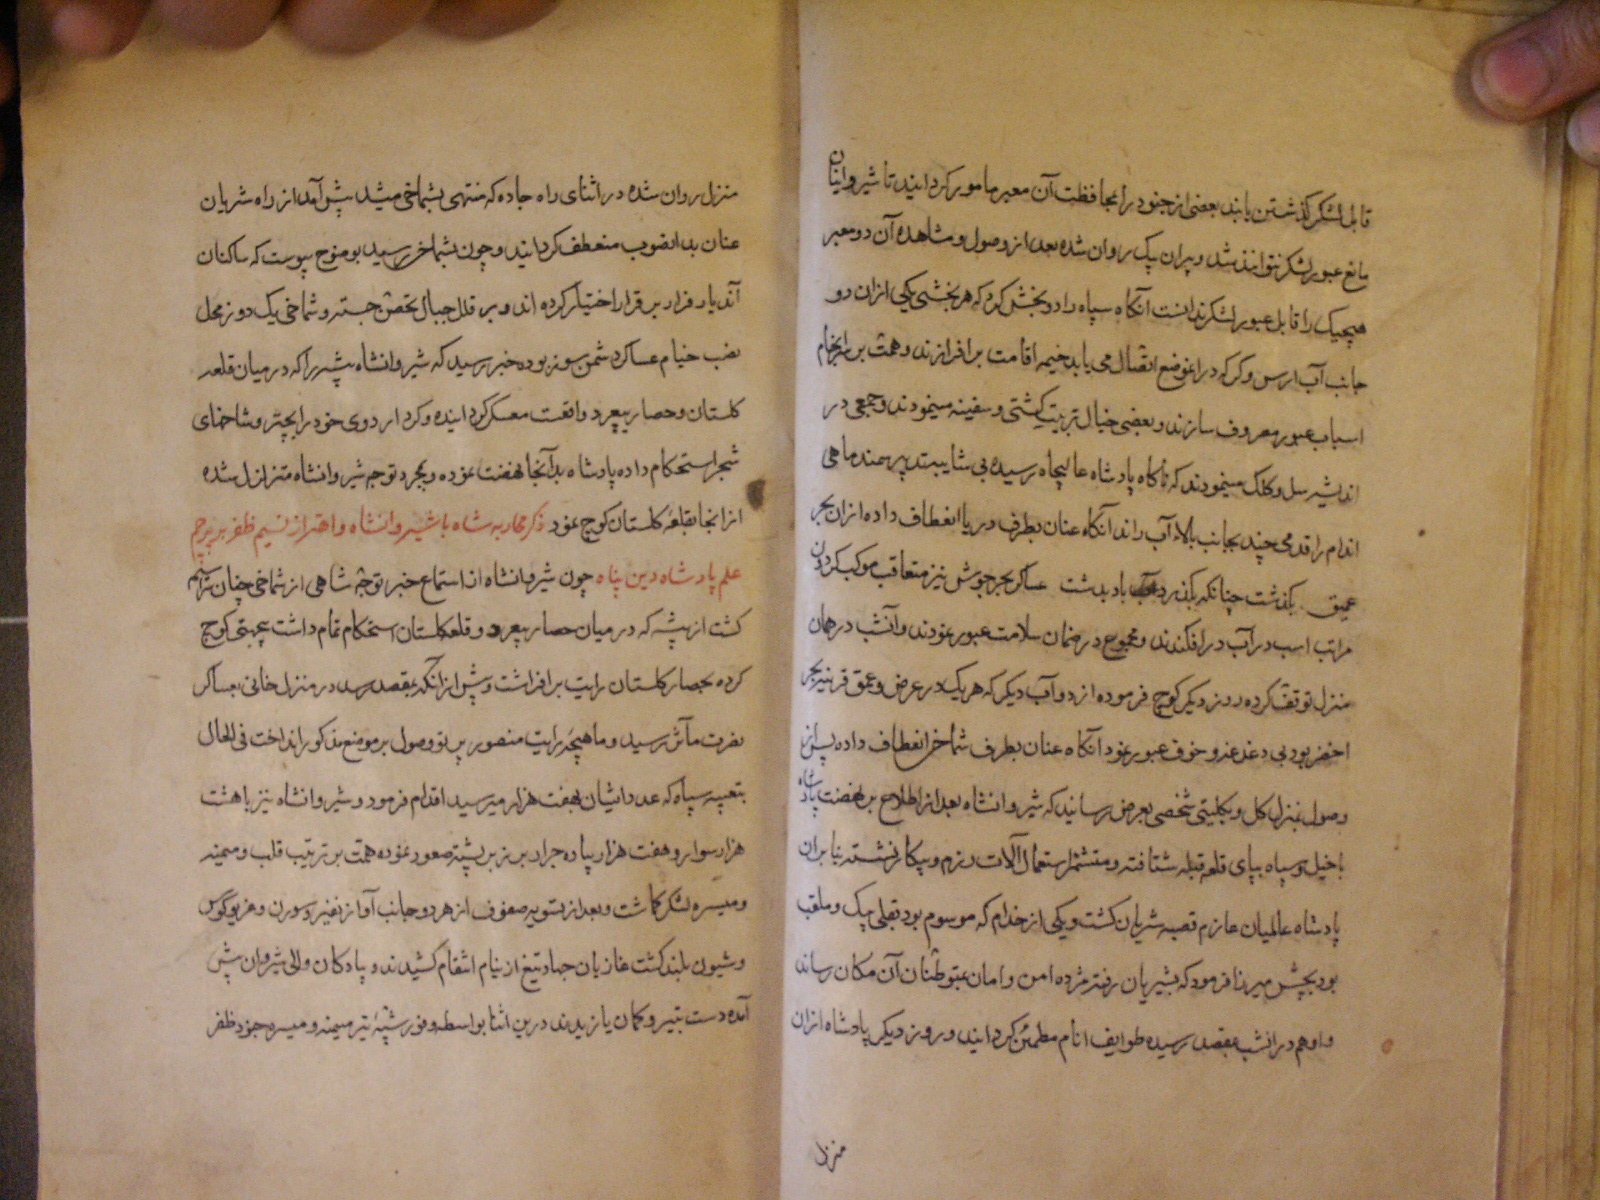 قابل لشکر گذشتن یابند بعضی از جنود را بمحافظت آن معبر مامور گردانیدند تا شیروانیان
مانع عبور لشکر نتوانند شد و بیران بیک روان شده بعد از وصول و مشاهده آن دو معبر
هیچیک را قابل عبور لشکر ندانست آنکاه سپاه را دو بخش کرد که هر بخشی یکی ازان دو
جانب آب ارس و کر که در انموضع اتصال می یابد خیمه اقامت بر افرازند و همت بر سرانجام
اسباب عبور مصروف سازند و بعضی خیال ترتیب کشتی و سفینه مینمودند و جمعی در
اندیشه سل و کلک مینمودند که ناکاه پادشاه عالیجاه رسیده بی شایبه تدبیر سمند ماهی
اندام را قدمی چند بجانب بالاء آب راند آنکاه عنان بطرف دریا انعطاف داده ازان بحر
عمیق بکذشت چنانکه بکذرد باد بدشت عساکر بحر جوش نیز متعاقب موکب کردون
مراتب اسب در آب در افکندند و مجموع در ضمان سلامت عبور نمودند و آنشب در همان
منزل توقف کرده روز دیکر کوچ فرموده از دو آب دیکر که هر یک در عرض و عمق قرینه بحر
اخضر بود بی دغدغه و خوف عبور نمود آنکاه عنان بطرف شماخی انعطاف داده پس از
وصول بمنزل کل و بکلیتی شخصی بعرض رسانید که شیروانشاه بعد از اطلاع بر نهضت پادشاه
با خیل و سپاه بپای قلعه قبله شتافته و متشمر استعمال آلات رزم و پیکار نشسته بنا بران
پادشاه عالمیان عازم قصبه شریان کشت و یکی از خدام که موسوم بود بقلی بیک و ملقب
بود بچش میرزا فرمود که بشریان رفته مژده امن و امان بمتوطنان آن مکان رساند
و او هم در انشب بمقصد رسیده طوایف انام مطمئن کردانید و روز دیکر پادشاه ازان
منزل
منزل روان شده در اثنای راه جاده که منتهی بشماخی میشد پیش آمد از راه شریان
عنان بدانصوب منعطف کردانید و چون بشماخی رسید بوضوح پیوست که ساکنان
آندیار فرار بر قرار اختیار کرده اند و بر قلل جبال تحصن جسته و شماخی یک دو روز محل
نصب خیام عساکر دشمن سوز بوده خبر رسید که شیروانشاه بیشه را که در میان قلعه
کلستان و حصار بیغرد واقعست معسکر کردانیده و کرد اردوی خود را بچتر و شاخهای
شجر استحکام داده پادشاه بدآنجا نهضت نموده و بمجرد توجه شیروانشاه متزلزل شده
ازانجا بقلعه کلستان کوچ نمود ذکر محاربه شاه با شیروانشاه و اهتزاز نسیم ظفر بر پرچم
علم پادشاه دین پناه چون شیروانشاه از استماع خبر توجه شاهی از شماخی چنان سراسیمه
کشت از بیشه که در میان حصار بیغرد و قلعه کلستان استحکام تمام داشت بجهتی کوچ
کرده بحصار کلستان رایت بر افراشت و پیش از آنکه بمقصد رسد در منزل خانی عساکر
نصرت مآثر رسید و ماهیچه رایت منصور پرتو وصول بر موضع مذکور انداخت فی الحال
بتعبیه سپاه که عدد ایشان بهفت هزار میرسید اقدام فرمود و شیروانشاه نیز با هشت
هزار سوار و هفت هزار پیاده جرار بر زبر پشته صعود نموده همت بر ترتیب قلب و میمنه
و میسره لشکر کماشت و بعد از تسویه صفوف از هر دو جانب آواز نفیر و سورن و غریو کوس
و شیون بلند کشت غازیان جهاد تیغ از نیام انتقام کشیدند و پیادکان والی شیروان پیش
آمده دست بتیر و کمان یازیدند درین اثنا بواسطه وفور رشیه تیر میمنه و میسره جنود ظفر